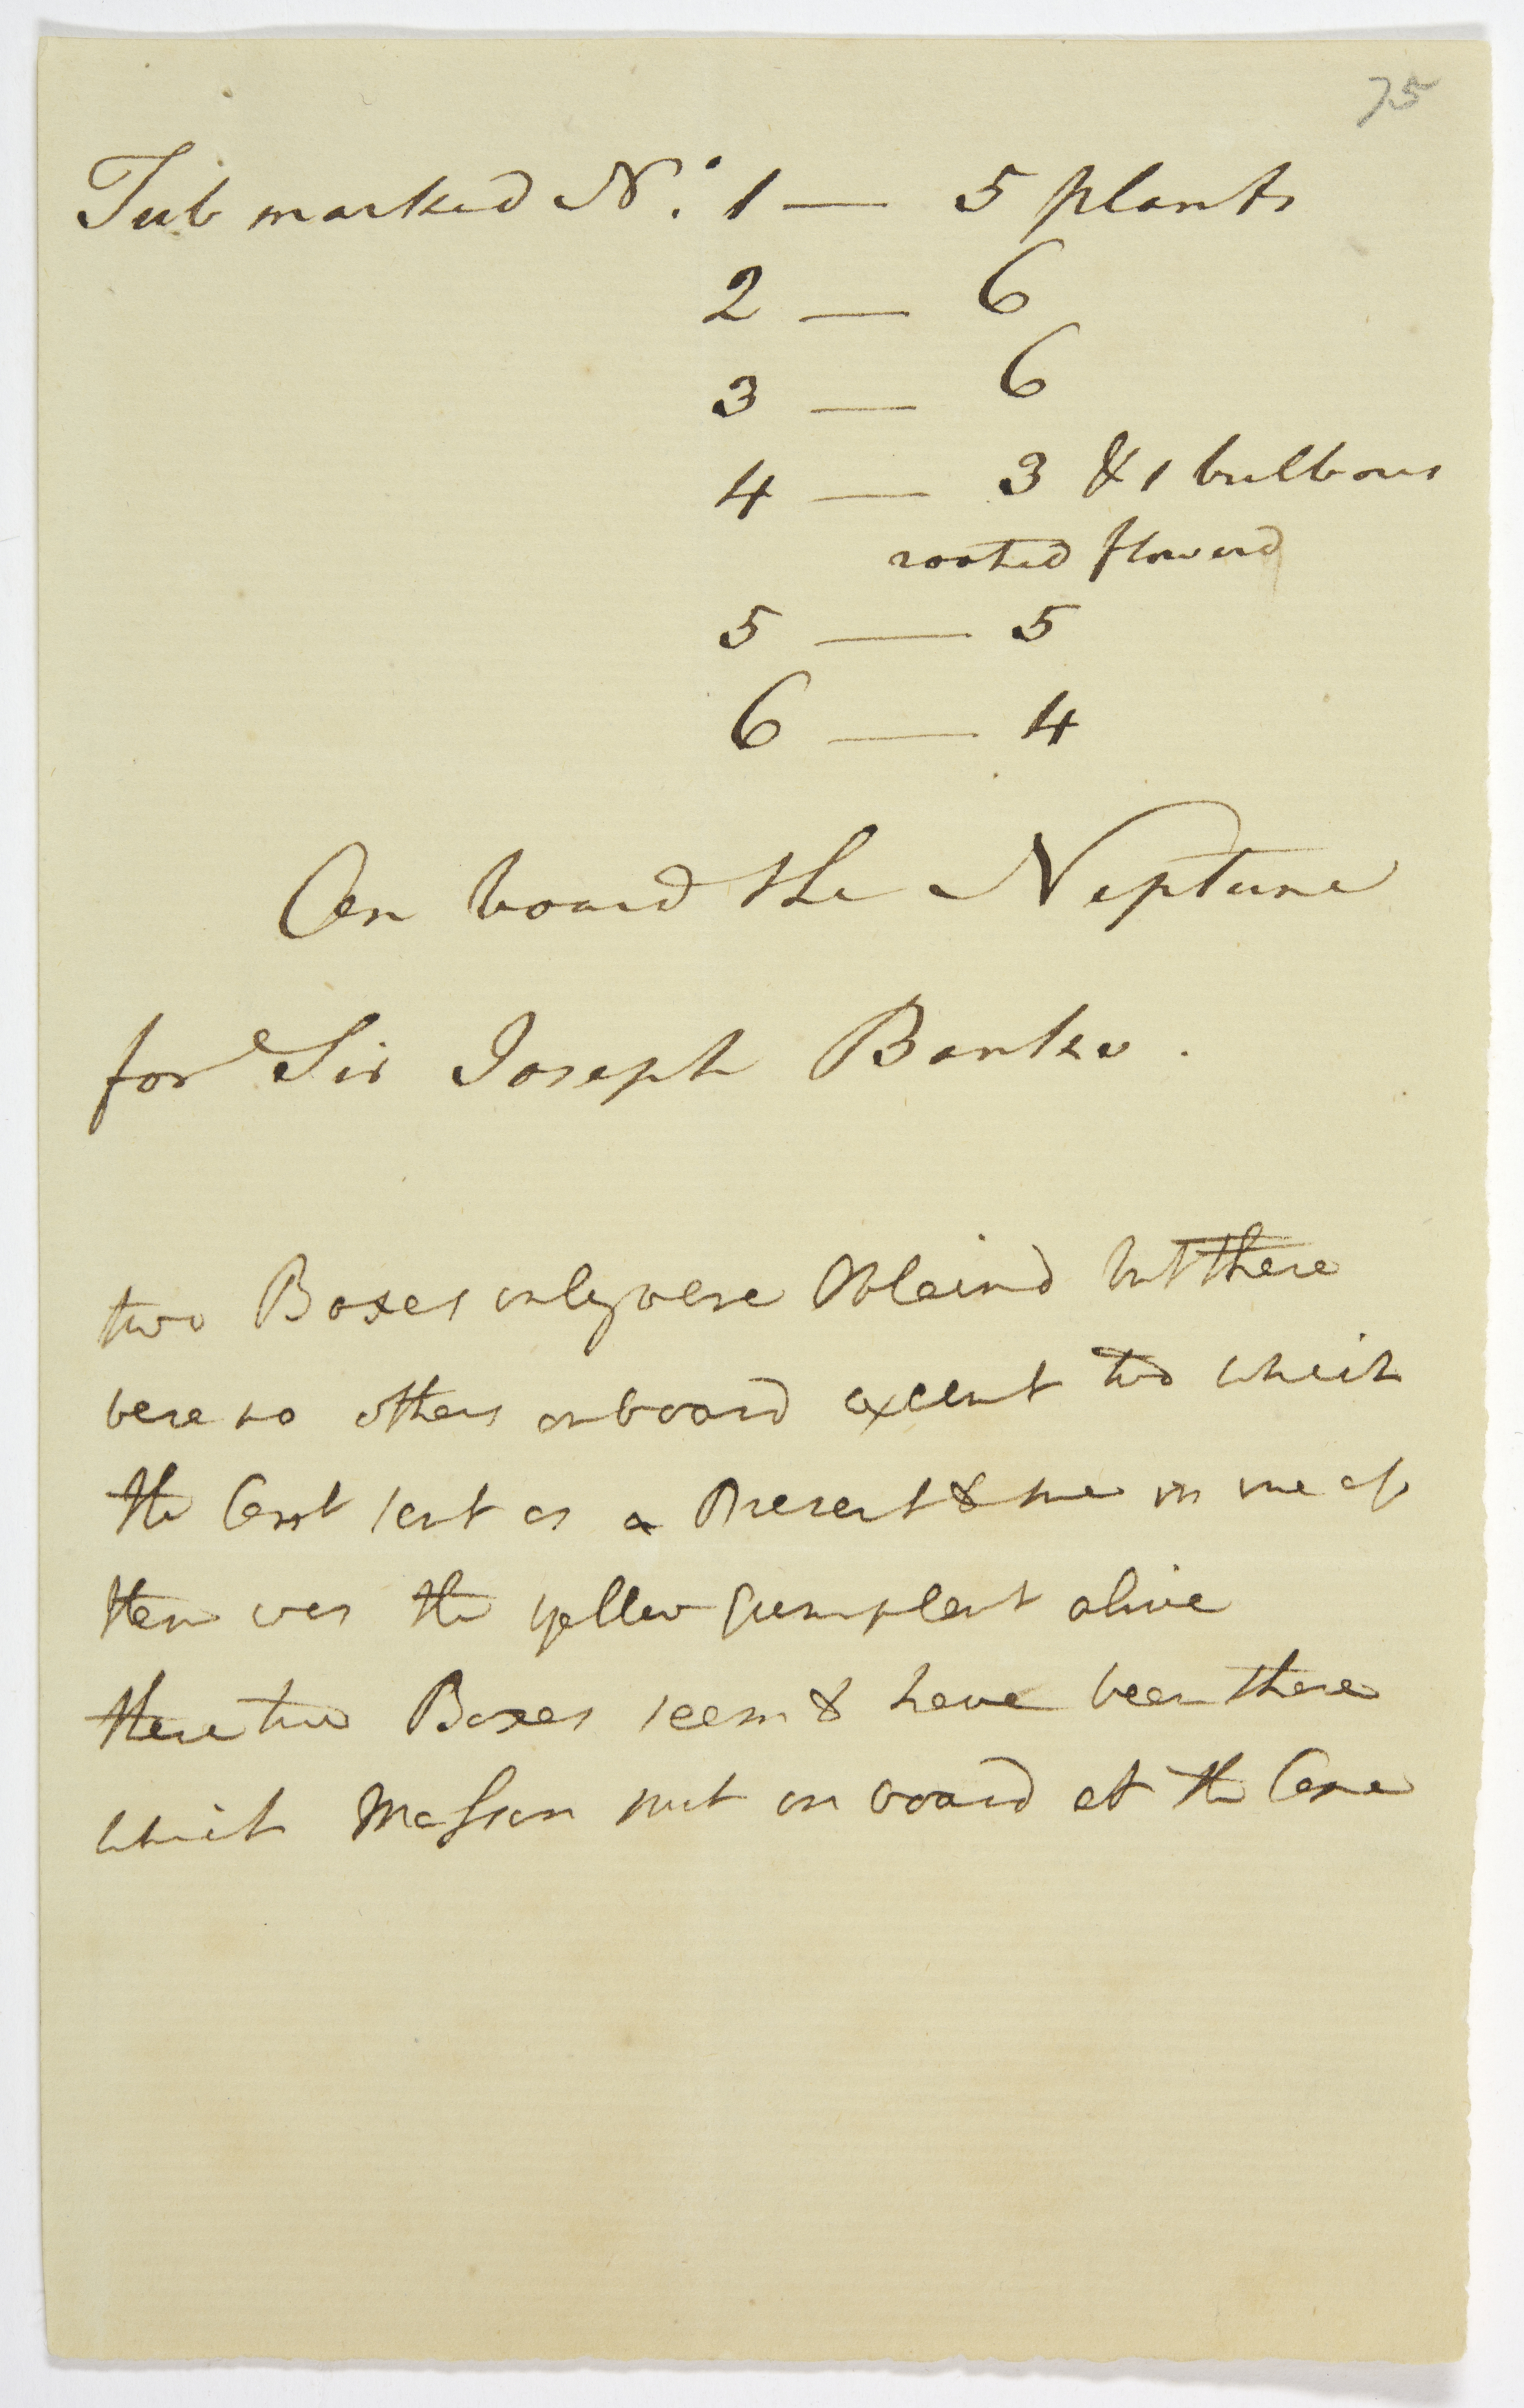 75
Tub marked No. 1 — 5 plants
2 — 6
3 — 6
4 — 3 & 1 bulbous
rooted flowerd
5 — 5
6 — 4
On board the Neptune
for Sir Joseph Banks.
two Boxes only were Obtaind but there
were no others on board except two which
the Capt sent as a Present & me in one of
them was the yellow Gumplant alive
these two Boxes seem to have been those
which Masson put on board at the Cape